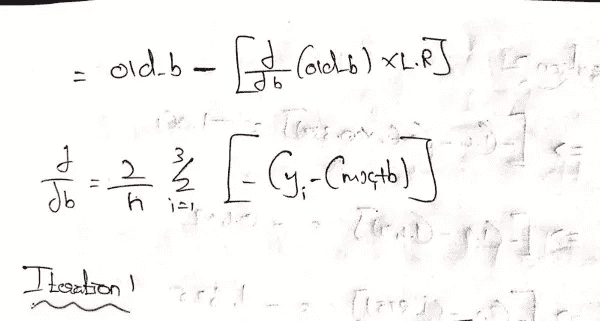 = old_b - [d/db (old_b) × L.R]
d/db = 2/n 3Σi=1 [-(yi-(mxi+b)]
Iteration 1